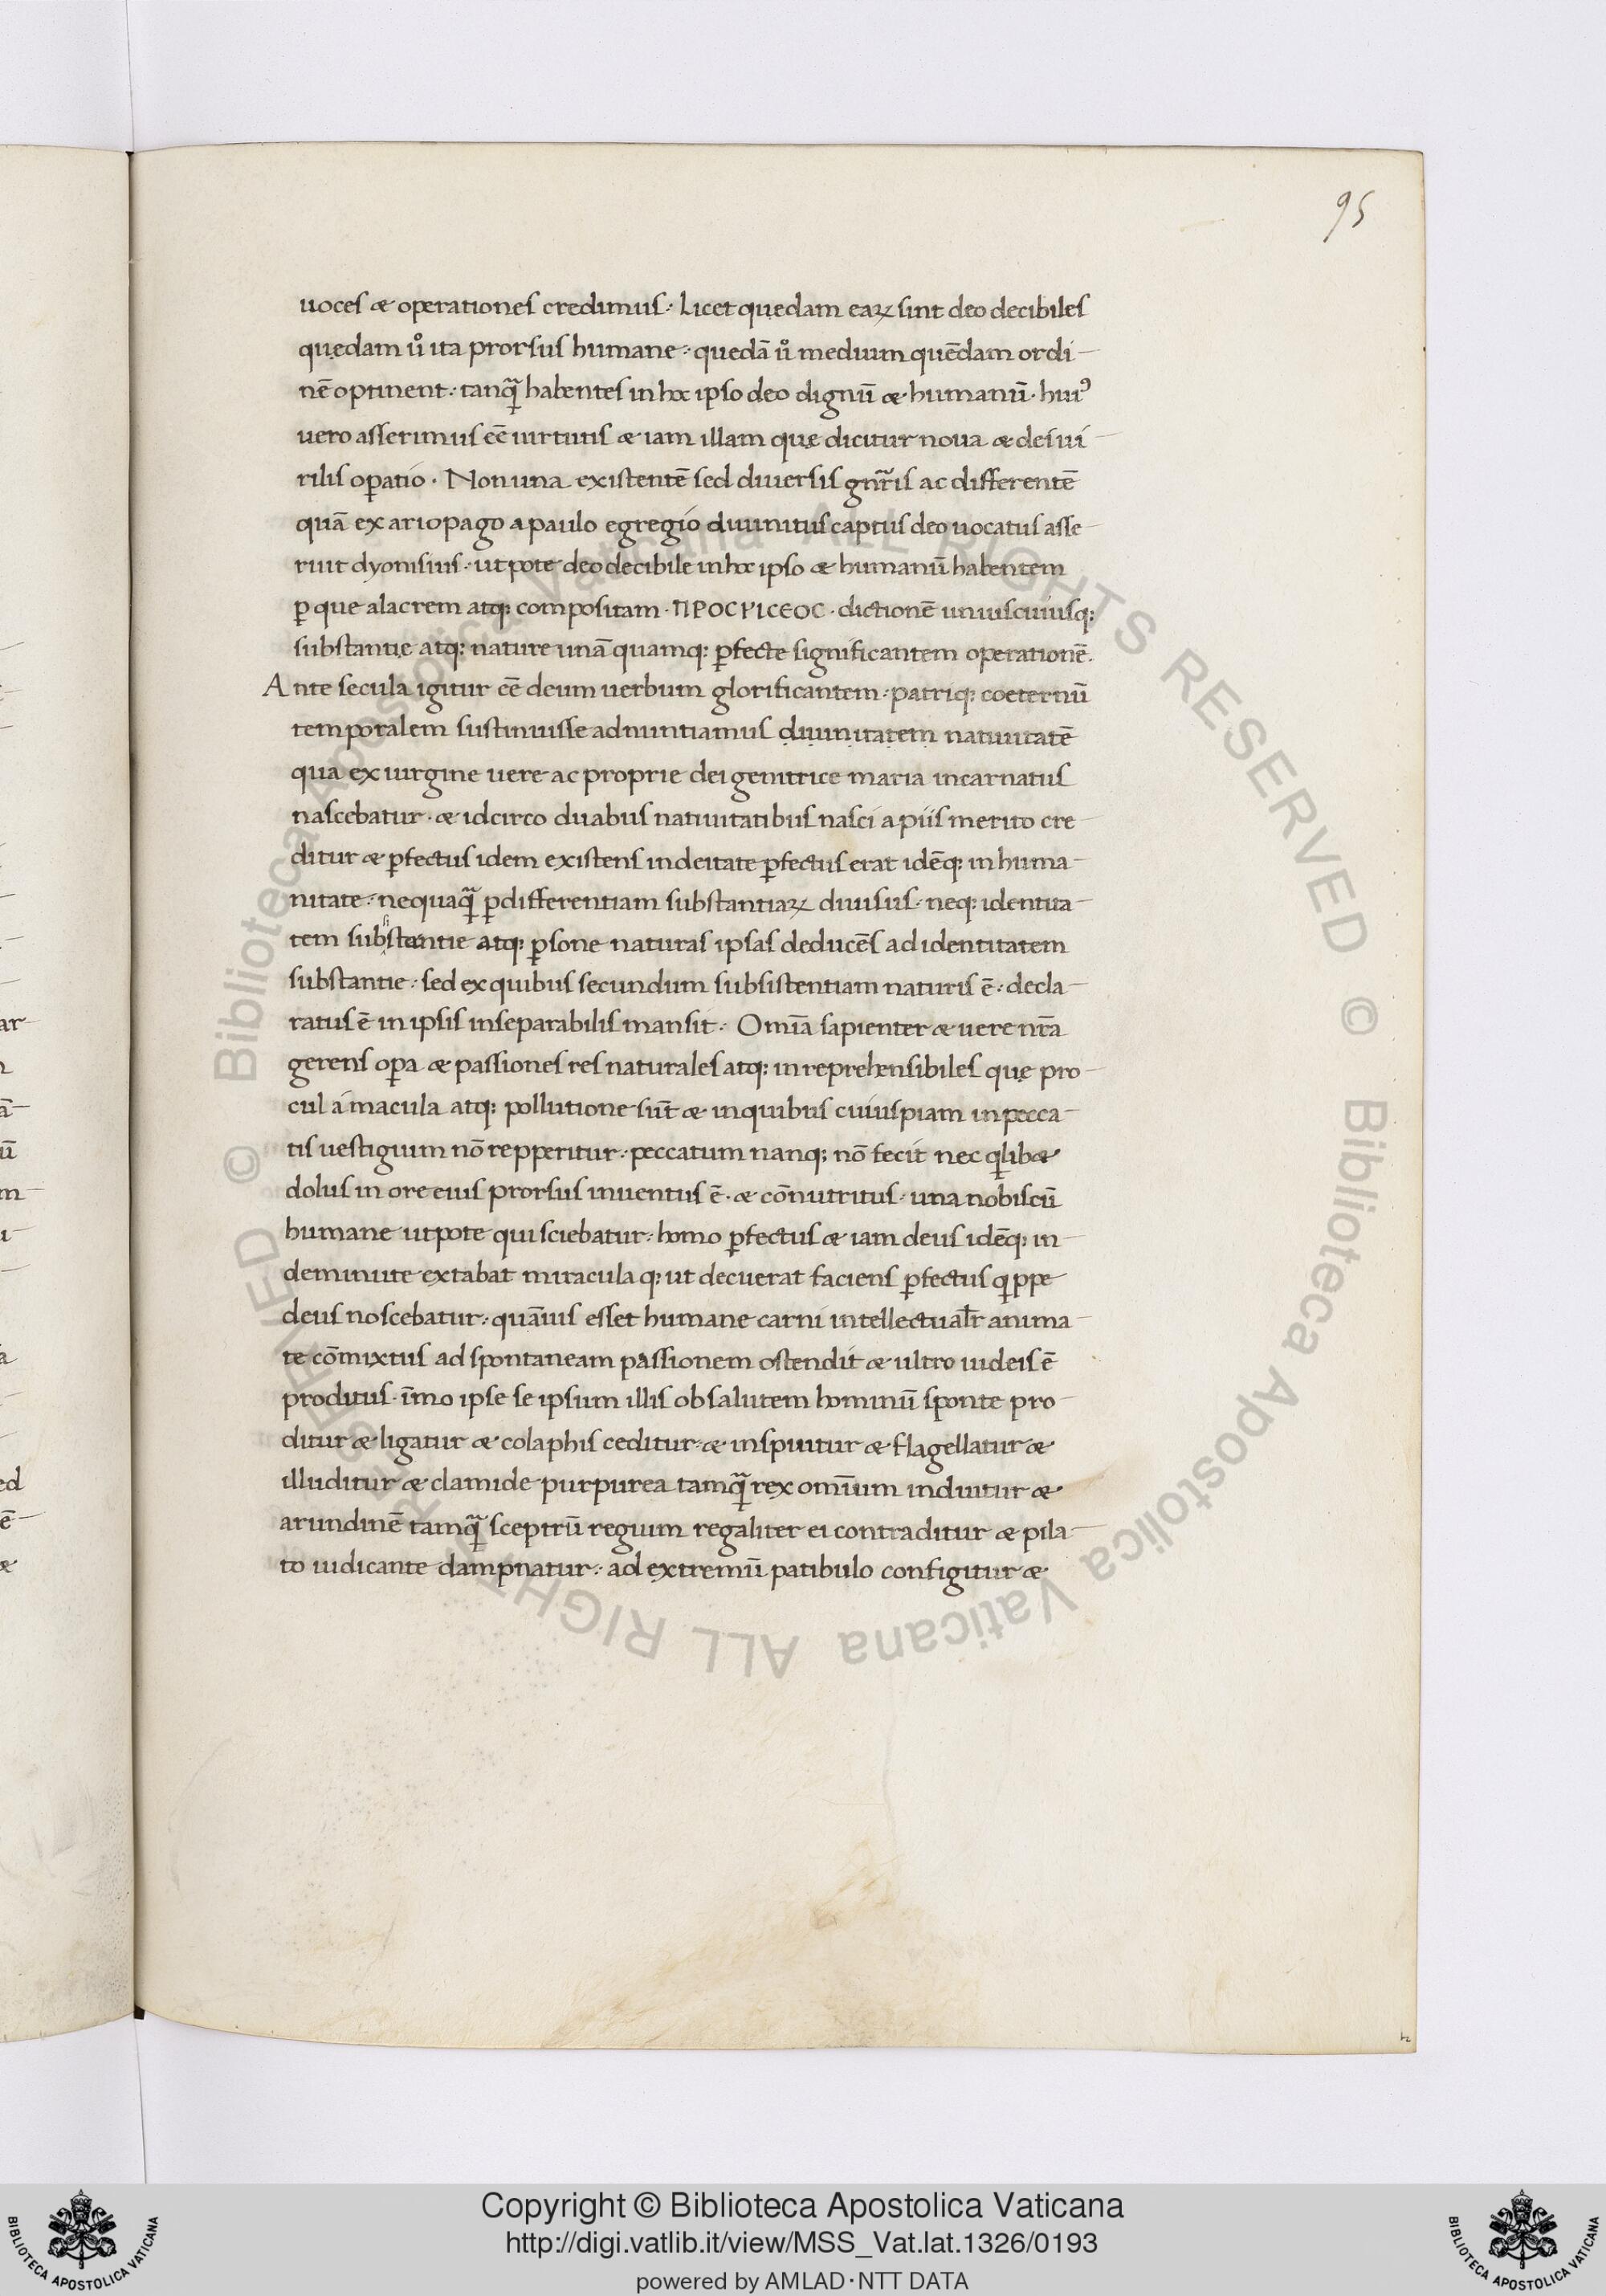 95
uoces & operationes credimus· Licet quędam eaꝝ sint deo decibiles
quędam ů ita prorsus humane· quędā ů medium quēdam ordi
nē optinent· tanqͣ̃ habentes in hoc ipso deo dignū & humanū· huiꝰ
uero asserimus eē uirtutis & iam illam quę dicitur noua & dei ui
rilis oꝑatio· Non una existentē sed diuersis gnr̃is ac differentē
quā ex ariopago a paulo egregio diuinitus captus deo uocatus asse
ruit dyonisius· ut pote deo decibile in hoc ipso & humanū habentem
ꝑ que alacrem atq: compositam· ΠΡΟCΡΙCΕΟC· dictionē uniuscuiusq:
substantię atq: nature unā quamq: ꝑfecte significantem operationē·
Ante secula igitur eē deum uerbum glorificantem· patriq: coeternū
temporalem sustinuisse adnuntiamus diuinitatem natiuitatē
qua ex uirgine uere ac proprie dei genitrice maria incarnatus
nascebatur· & idcirco duabus natiuitatibus nasci a piis merito cre
ditur & ꝑfectus idem existens in deitate ꝑfectus erat idēq: in huma
nitate· nequaqͣ̃ ꝑ differentiam substantiaꝝ diuisus· neq: identita
tem substantie atq: ꝑsone naturas ipsas deducēs ad identitatem
substantie· sed ex quibus secundum subsistentiam naturis ē· decla
ratus ē in ipsis inseparabilis mansit· Om̄ia sapienter & uere nr̄a
gerens oꝑa & passiones res naturales atq: inreprehensibiles quę pro
cul a macula atq: pollutione sūt & in quibus cuiuspiam in pecca
tis uestigium nō repperitur· peccatum nanq: nō fecit nec qͥlib&
dolus in ore eius prorsus inuentus ē· & cōnutritus· una nobiscū
humane utpote qui sciebatur· homo ꝑfectus & iam deus idēq: in
deminute extabat miracula q: ut decuerat faciens ꝑfectus qͥppe
deus noscebatur· quāuis esset humane carni intellectualr̄ anima
te cōmixtus ad spontaneam passionem ostendit & ultro iudeis ē
proditus· īmo ipse se ipsum illis ob salutem hominū sponte pro
ditur & ligatur & colaphis ceditur· & inspuitur & flagellatur &
illuditur & clamide purpurea tamqͣ̃ rex om̄ium induitur &
arundinē tamqͣ̃ sceptrū regium regaliter ei contraditur & pila
to iudicante dampnatur· ad extremū patibulo configitur &
Copyright © Biblioteca Apostolica Vaticana
http://digi.vatlib.it/view/MSS_Vat.lat.1326/0193
powered by AMLAD·NTT DATA
BIBLIOTECA APOSTOLICA VATICANA
BIBLIOTECA APOSTOLICA VATICANA
© Biblioteca Apostolica Vaticana ALL RIGHTS RESERVED
© Biblioteca Apostolica Vaticana ALL RIGHTS RESERVED